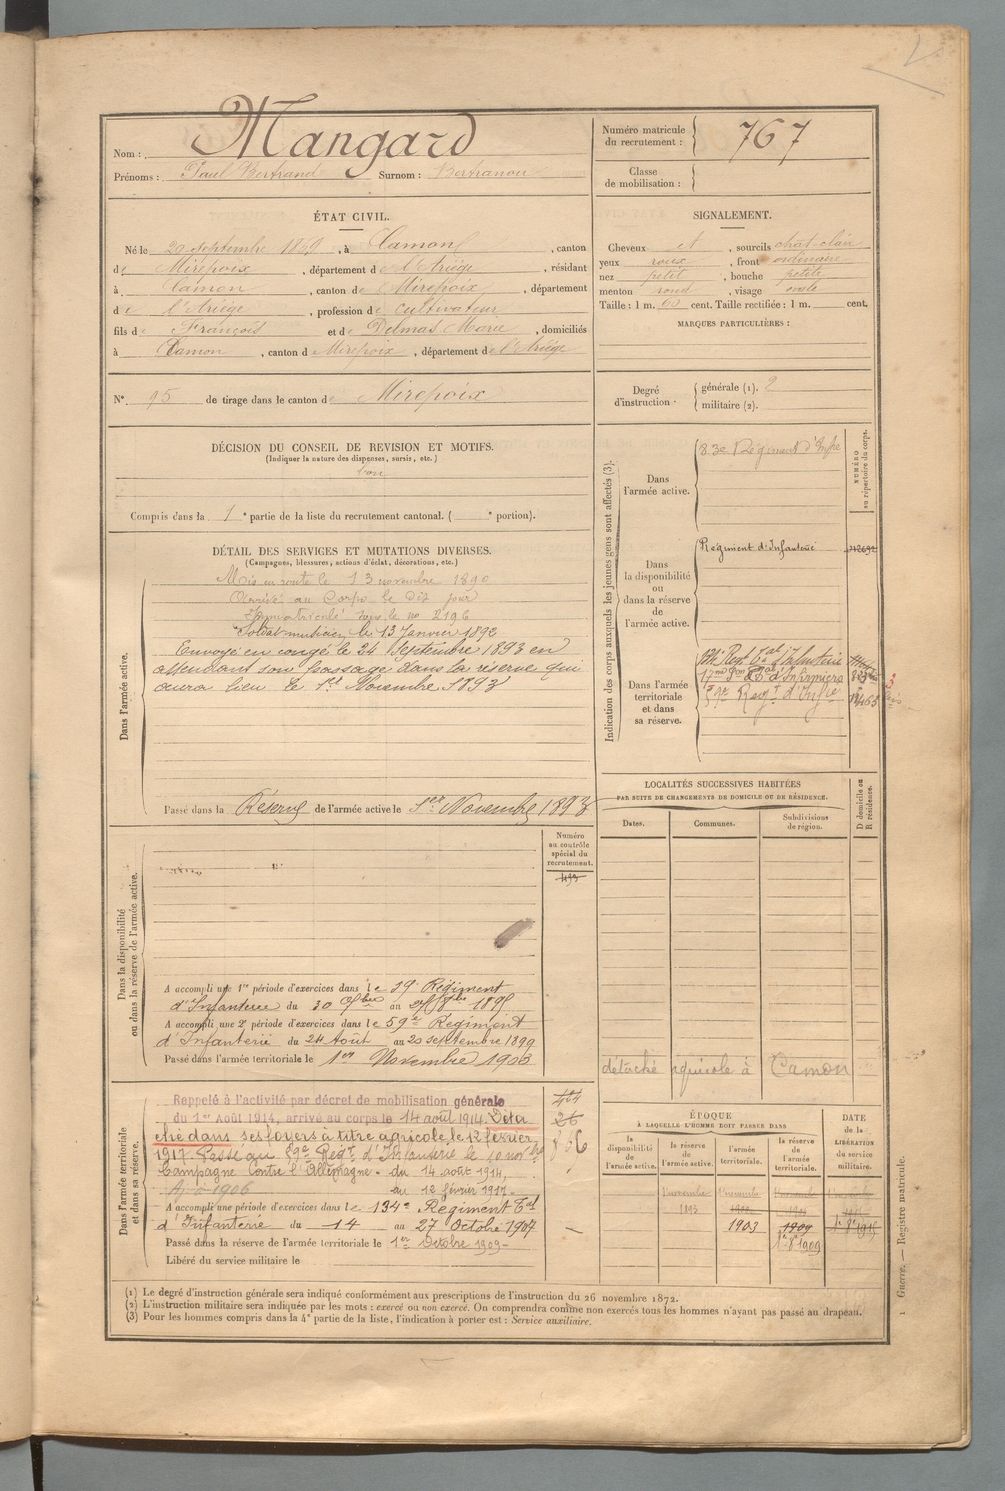 Nom : Mangard
Prénoms : Paul Bertrand Surnom : Bertranou
Numéro matricule du recrutement : 767
Classe de mobilisation :
ÉTAT CIVIL.
Né le 20 septembre 1869, à Camon, canton
de Mirepoix, département de l'Ariége, résidant
à Camon, canton de Mirepoix, département
de l'Ariége, profession de cultivateur
fils de François et de Delmas Marie, domiciliés
à Camon, canton de Mirepoix, département de l'Ariége
SIGNALEMENT.
Cheveux et, sourcils chât-clair
yeux roux, front ordinaire
nez petit, bouche petite
menton rond, visage ovale
Taille : 1 m. 60 cent. Taille rectifiée : 1 m. cent.
MARQUES PARTICULIÈRES :
N°. 95 de tirage dans le canton de Mirepoix
Degré d'instruction
générale (1). 2
militaire (2).
DÉCISION DU CONSEIL DE REVISION ET MOTIFS.
(Indiquer la nature des dispenses, sursis, etc.)
bon
Compris dans la 1e partie de la liste du recrutement cantonal. ( e portion).
DÉTAIL DES SERVICES ET MUTATIONS DIVERSES.
(Campagnes, blessures, actions d'éclat, décorations, etc.)
Dans l'armée active.
Mis en route le 13 novembre 1890
Arrivé au Corps le dit jour
Immatriculé sous le no 2196
Soldat musicien le 13 Janvier 1892
Envoyé en congé le 24 Septembre 1893 en
attendant son passage dans la réserve qui
aura lieu le 1er Novembre 1893
Passé dans la Réserve de l'armée active le 1er Novembre 1893
Indication des corps auxquels les jeunes gens sont affectés (3).
NUMÉRO au répertoire du corps.
Dans l'armée active.
83e Régiment d'Infie
Dans la disponibilité ou dans la réserve de l'armée active.
Régiment d'Infanterie
Dans l'armée territoriale et dans sa réserve.
134e Regt Tal d'Infanterie
d'Infirmiers
59e Regt d'Infie
LOCALITÉS SUCCESSIVES HABITÉES
PAR SUITE DE CHANGEMENTS DE DOMICILE OU DE RÉSIDENCE.
Dates. Communes. Subdivisions de région. D domicile ou R résidence.
détaché agricole à Camon
Dans la disponibilité ou dans la réserve de l'armée active.
Numéro au contrôle spécial du recrutement.
493
A accompli une 1re période d'exercices dans le 19e Régiment
d'Infanterie du 30 7bre au 8bre 1895
A accompli une 2e période d'exercices dans le 59e Régiment
d'Infanterie du 24 Août au 20 septembre 1899
Passé dans l'armée territoriale le 1er Novembre 1903
Dans l'armée territoriale et dans sa réserve.
Rappelé à l'activité par décret de mobilisation générale
du 1er Août 1914, arrivé au corps le 14 août 1914. Déta
ché dans ses foyers à titre agricole, le 12 février
1917. Passé au 59e Regt d'Infanterie le 10 novbre
Campagne Contre l'Allemagne - du 14 août 1914,
au 12 février 1917.
A accompli une période d'exercices dans le 134e Régiment Tal
d'Infanterie du 14 au 27 Octobre 1907
Passé dans la réserve de l'armée territoriale le 1er Octobre 1909-
Libéré du service militaire le
ÉPOQUE
À LAQUELLE L'HOMME DOIT PASSER DANS
la disponibilité de l'armée active. la réserve de l'armée active. l'armée territoriale. la réserve de l'armée territoriale. DATE de la LIBÉRATION du service militaire.
1er novembre 1893
1903 1909 1r 8e 1915
1r 8e 1909
(1) Le degré d'instruction générale sera indiqué conformément aux prescriptions de l'instruction du 26 novembre 1872.
(2) L'instruction militaire sera indiquée par les mots : exercé ou non exercé. On comprendra comme non exercés tous les hommes n'ayant pas passé au drapeau.
(3) Pour les hommes compris dans la 4e partie de la liste, l'indication à porter est : Service auxiliaire.
1 Guerre. — Registre matricule.